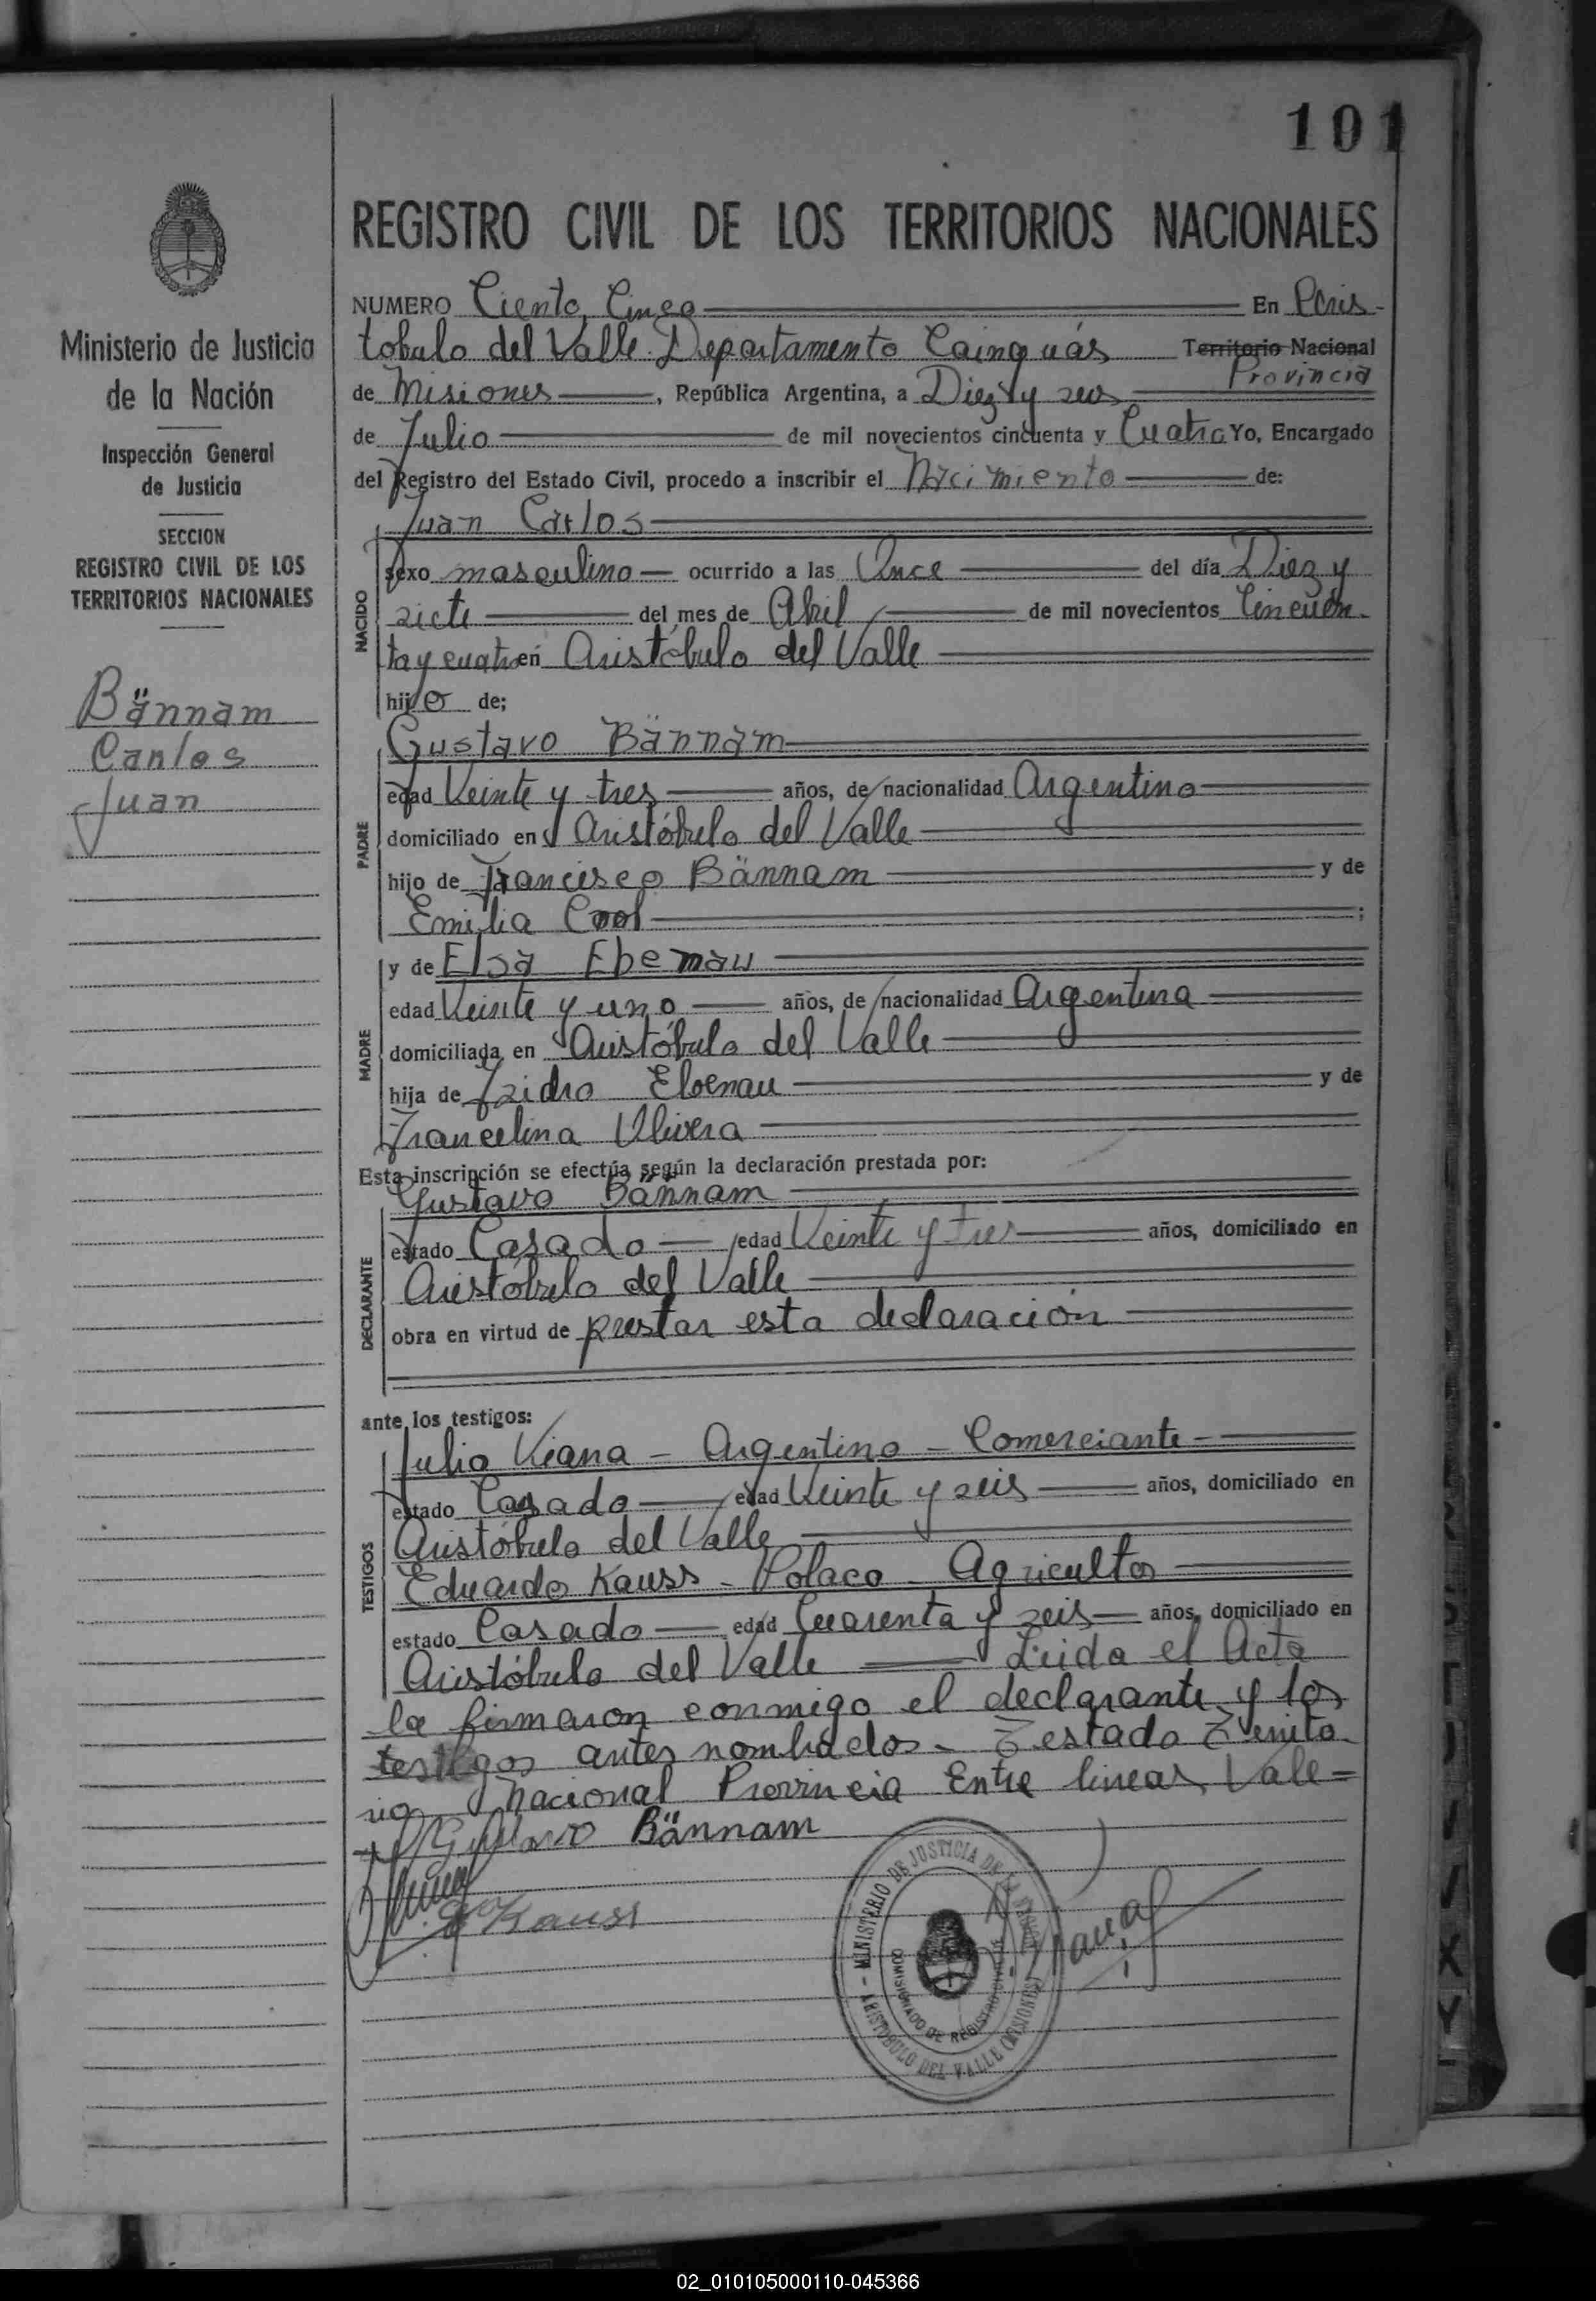 101
REGISTRO CIVIL DE LOS TERRITORIOS NACIONALES
Ministerio de Justicia
de la Nación
Inspección General
de Justicia
SECCION
REGISTRO CIVIL DE LOS
TERRITORIOS NACIONALES
Bännam
Carlos
Juan
NUMERO Ciento Cinco En Aris-
tobulo del Valle Departamento Cainguás Territorio Nacional
Provincia
de Misiones, República Argentina, a Diez y seis
de Julio de mil novecientos cincuenta y Cuatro Yo, Encargado
del Registro del Estado Civil, procedo a inscribir el Nacimiento de:
Juan Carlos
NACIDO
sexo masculino ocurrido a las Once del día Diez y
siete del mes de Abril de mil novecientos Cincuen-
ta y cuatro en Aristóbulo del Valle
hijo de;
Gustavo Bännam
PADRE
edad Veinte y tres años, de nacionalidad Argentino
domiciliado en Aristóbulo del Valle
hijo de Francisco Bännam y de
Emilia Cool;
MADRE
y de Elsa Ebenau
edad Veinte y uno años, de nacionalidad Argentina
domiciliada en Aristóbulo del Valle
hija de Izidro Ebenau y de
Francelina Olivera
Esta inscripción se efectúa según la declaración prestada por:
Gustavo Bännam
DECLARANTE
estado Casado edad Veinte y tres años, domiciliado en
Aristóbulo del Valle
obra en virtud de prestar esta declaración
ante los testigos:
TESTIGOS
Julio Viana - Argentino - Comerciante -
estado Casado edad Veinte y seis años, domiciliado en
Aristóbulo del Valle
Eduardo Kauss - Polaco - Agricultor
estado Casado edad Cuarenta y seis años, domiciliado en
Aristóbulo del Valle Leida el Acta
la firmaron conmigo el declarante y los
testigos antes nombrados - Testado Territo-
rio Nacional Provincia Entre lineas Vale =
Gustavo Bännam
Kauss
MINISTERIO DE JUSTICIA DE LA NACION
COMISIONADO DE REGISTRO CIVIL
ARISTOBULO DEL VALLE (MISIONES)
02_010105000110-045366